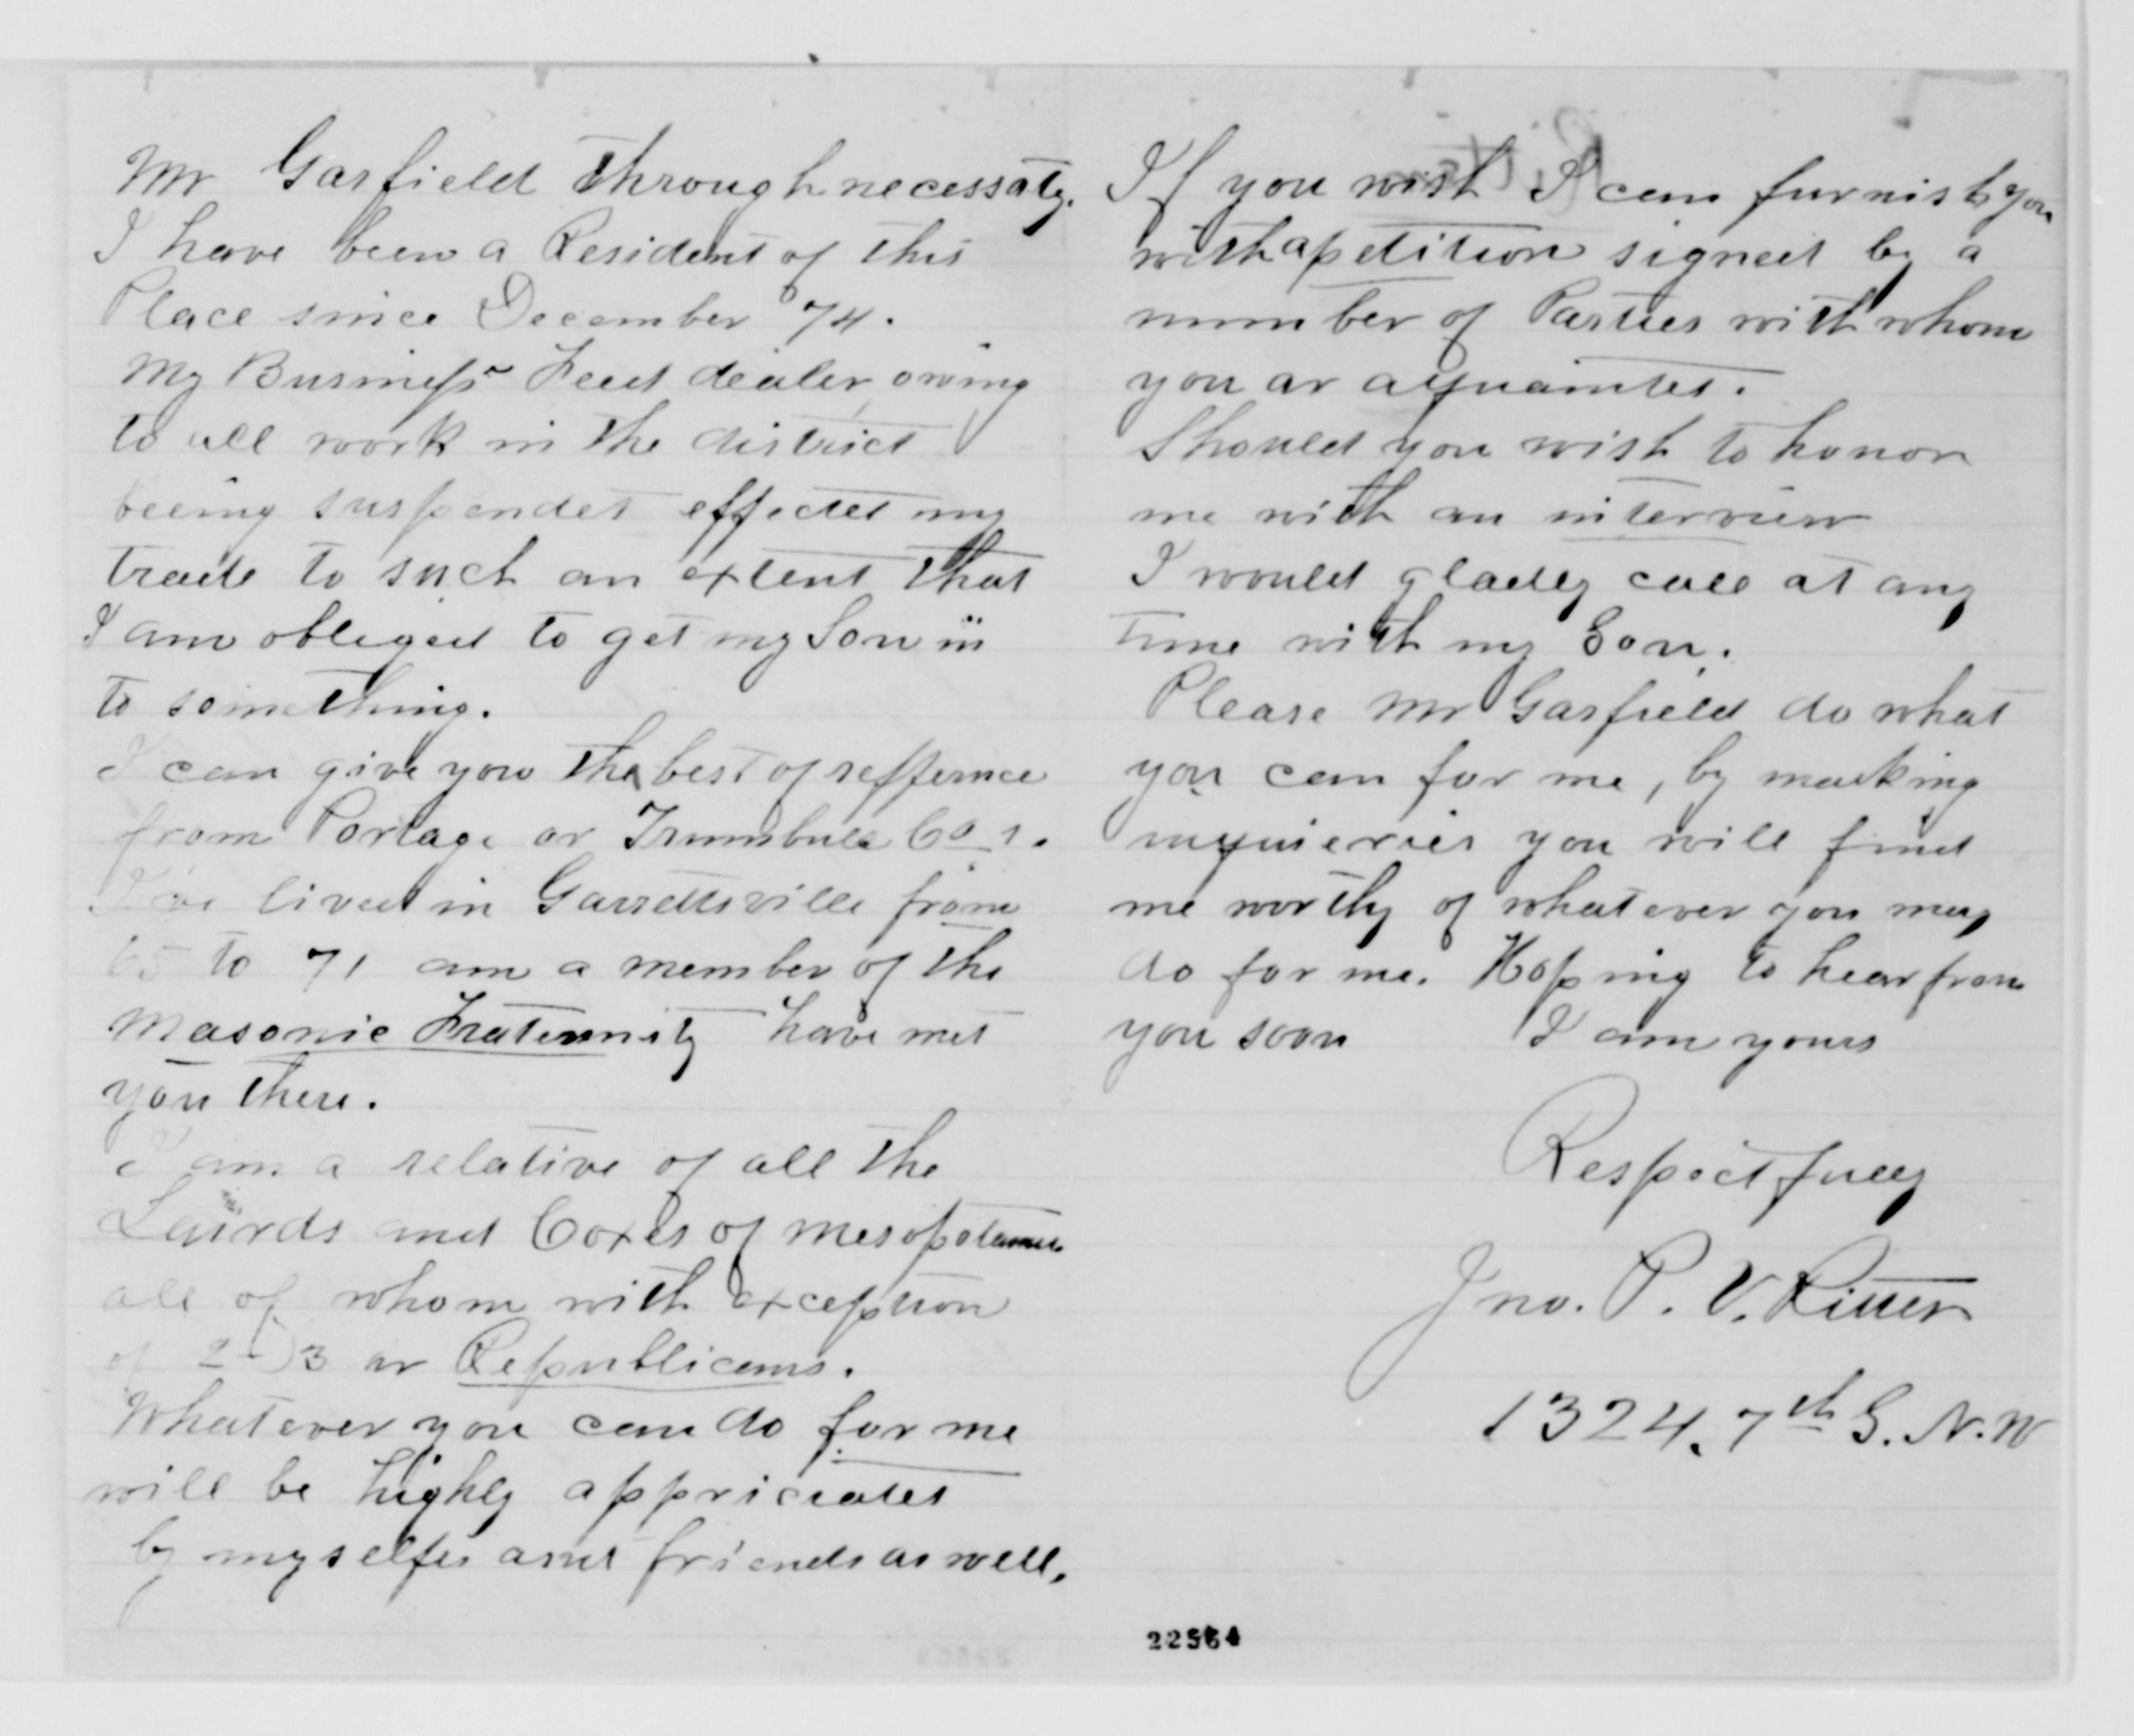 Mr Garfield through necessaty.
I have been a Resident of this
Place since December 74.
My Business Feed dealer, owing
to all work in the district
beeing suspended effected my
trade to such an extent that
I am obliged to get my Son in
to something.
I can give you the best of refference
from Portage or Trumbull Co s.
I've lived in Garrettsville from
65 to 71 am a member of the
Masonic Fraternity have met
you there.
I am a relative of all the
Lairds and Coxes of Mesopotamia
all of whom with exception
of 2-3 ar Republicans.
Whatever you can do for me
will be highly appriciated
by myselfe and friends as well.
If you wish I can furnish you
with a petition signed by a
number of Parties with whom
you ar aquainted.
Should you wish to honor
me with an interview
I would gladly call at any
time with my Son.
Please Mr Garfield do what
you can for me, by making
inquieries you will find
me worthy of whatever you may
do for me. Hoping to hear from
you soon I am yours
Respectfully
Jno. P. V. Ritter
1324. 7th S. N. W
22564